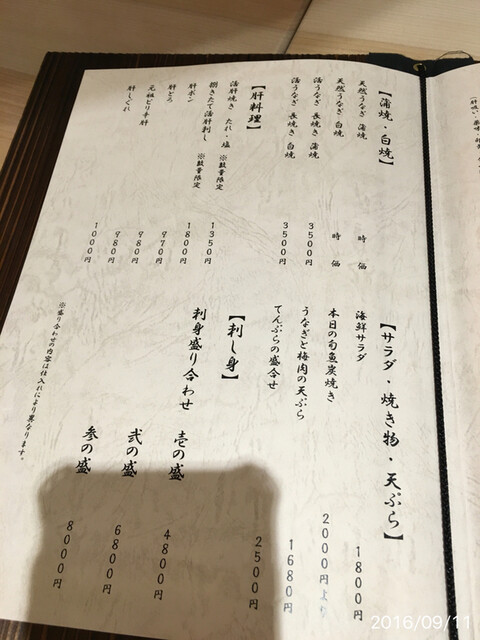 【蒲焼・白焼】
天然うなぎ 蒲焼 時価
天然うなぎ 白焼 時価
活うなぎ 長焼き 蒲焼 3500円
活うなぎ 長焼き 白焼 3500円
【肝料理】
活肝焼き たれ・塩 ※数量限定 1350円
捌きたて活肝刺し ※数量限定 1800円
肝ポン 770円
肝とろ 980円
元祖ピリ辛肝 980円
肝しぐれ 1000円
【サラダ・焼き物・天ぷら】
海鮮サラダ 1800円
本日の旬魚炭焼き 2000円より
うなぎと梅肉の天ぷら 1680円
てんぷらの盛合せ 2500円
【刺し身】
刺身盛り合わせ 壱の盛 4800円
弐の盛 6800円
参の盛 8000円
※盛り合わせの内容は仕入れにより異なります。
2016/09/11